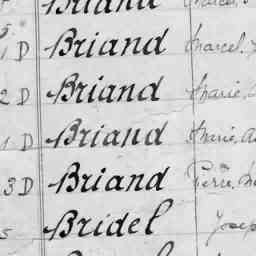 Briand Marcel
5.
1 D Briand Marcel
2 D Briand Marie
1 D Briand Marie
3 D Briand Pierre
5 Bridel Josep